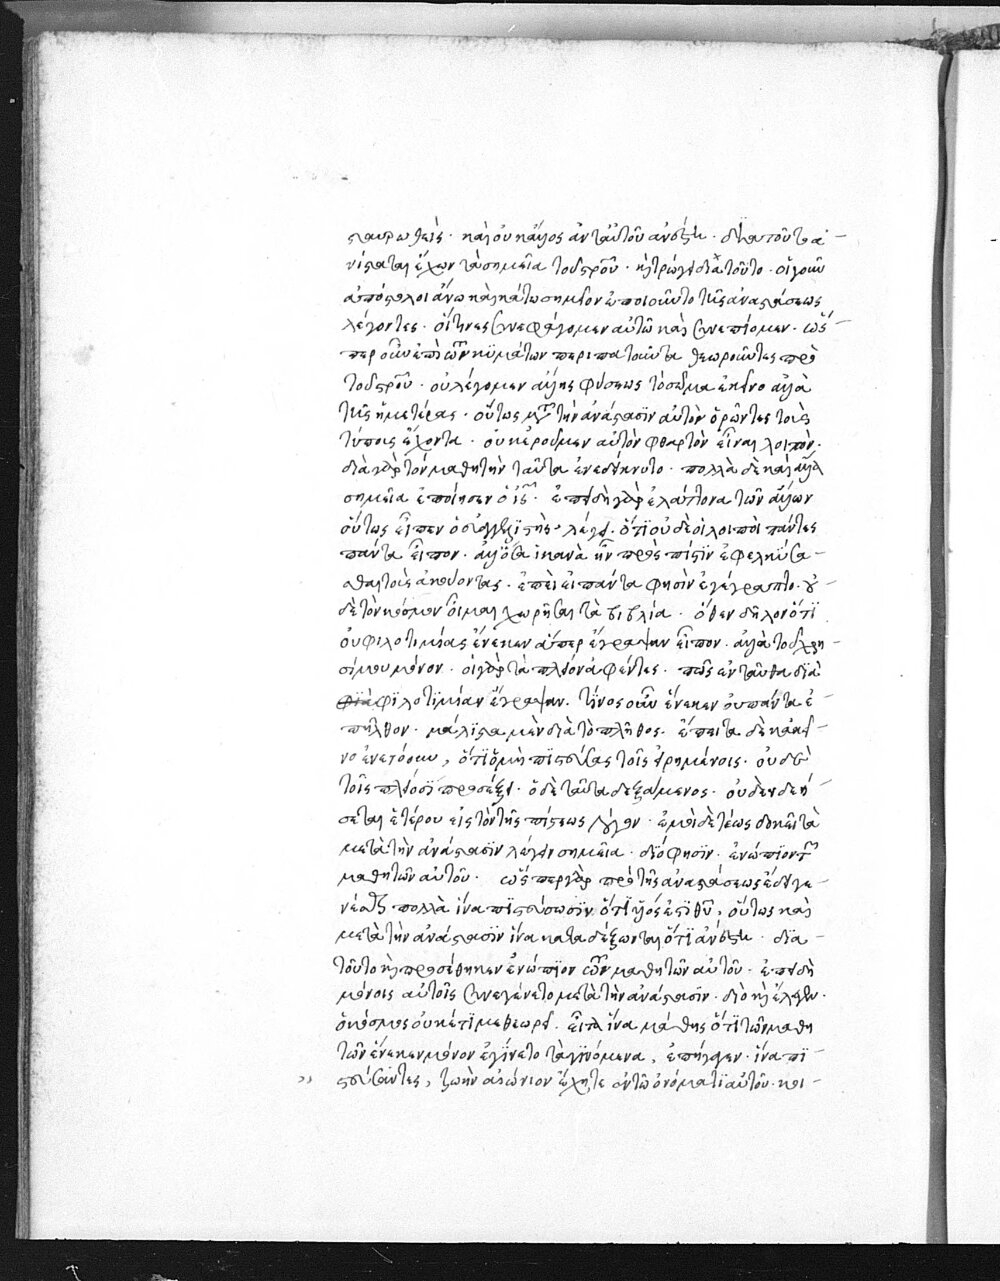 σταυρωθείς. καὶ οὐκ ἄλλος ἀντ' αὐτοῦ ἀνέστη. διὰ τοῦτο ἀ
νίσταται ἔχων τὰ σημεῖα τοῦ σταυροῦ. καὶ τρώγει διὰ τοῦτο. οἱ γοῦν
ἀπόστολοι ἄνω καὶ κάτω σημεῖον ἐποιοῦντο τῆς ἀναστάσεως
λέγοντες. οἵτινες συνεφάγομεν αὐτῶ καὶ συνεπίομεν. ὥσ
περ οὖν ἐπὶ τῶν κυμάτων περιπατοῦντα θεωροῦντες πρὸ
τοῦ σταυροῦ. οὐ λέγομεν ἄλλης φύσεως τὸ σῶμα ἐκεῖνο ἀλλὰ
τῆς ἡμετέρας. οὕτως μετὰ τὴν ἀνάστασϊν αὐτὸν ὁρῶντες τοὺς
τύπους ἔχοντα. οὐκ ἐροῦμεν αὐτὸν φθαρτὸν εἶναι λοιπόν.
διὰ γὰρ τὸν μαθητὴν ταῦτα ἐνεδείκνυτο. πολλὰ δὲ καὶ ἄλλα
σημεῖα ἐποίησεν ὁ ἰς. ἐπειδὴ γὰρ ἐλάττονα τῶν ἄλλων
οὗτος εἶπεν ὁ εὐαγγελϊστής. λέγει. ὅτι οὐδὲ οἱ λοιποὶ πάντες
πάντα εἶπον. ἀλλ' ὅσα ἱκανὰ ἦν πρὸς πίστϊν ἐφελκύσα
σθαι τοὺς ἀκούοντας. ἐπεὶ εἰ πάντα φησὶν ἐγέγραπτο. οὐ
δὲ τὸν κόσμον οἶμαι χωρῆσαι τὰ βιβλία. ὅθεν δῆλον ὅτϊ
οὐ φιλοτιμίας ἕνεκεν ἅπερ ἔγραψαν εἶπον. ἀλλὰ τοῦ χρη
σίμου μόνον. οἱ γὰρ τὰ πλείονα ἀφέντες. πῶς ἐνταῦθα δϊὰ
φϊλοτϊμίαν ἔγραψαν. τίνος οὖν ἕνεκεν οὐ πάντα ἐ
πῆλθον. μάλϊστα μὲν διὰ τὸ πλῆθος. ἔπειτα δὲ κἀκεῖ
νο ἐνενόουν, ὅτϊ ὁ μὴ πϊστεύσας τοῖς εἰρημένοις. οὐδὲ
τοῖς πλείοσϊ προσέξει. ὁ δὲ ταῦτα δεξάμενος. οὐδενὸς δεή
σεται ἑτέρου εἰς τὸν τῆς πίστεως λόγον. ἐμοὶ δὲ τέως δοκεῖ τὰ
μετὰ τὴν ἀνάστασϊν λέγειν σημεῖα. δϊό φησϊν. ἐνώπϊον τῶν
μαθητῶν αὐτοῦ. ὥσπερ γὰρ πρὸ τῆς ἀναστάσεως ἔδει γε
νέσθαι πολλὰ ἵνα πϊστεύσωσϊν ὅτϊ υἱός ἐστϊ θῦ, οὕτως καὶ
μετὰ τὴν ἀνάστασϊν ἵνα καταδέξωνται ὅτϊ ἀνέστη. δϊὰ
τοῦτο καὶ προσέθηκεν ἐνώπϊον τῶν μαθητῶν αὐτοῦ. ἐπειδὴ
μόνοις αὐτοῖς συνεγένετο μετὰ τὴν ἀνάστασϊν. διὸ καὶ ἔλεγεν.
ὁ κόσμος οὐκέτι με θεωρεῖ. εἶτα ἵνα μάθης ὅτϊ τῶν μαθη
τῶν ἕνεκεν μόνον ἐγίνετο τὰ γϊνόμενα, ἐπήγαγεν. ἵνα πϊ
στεύσαντες, ζωὴν αἰώνιον ἔχητε ἐν τῶ ὀνόματϊ αὐτοῦ. κοι